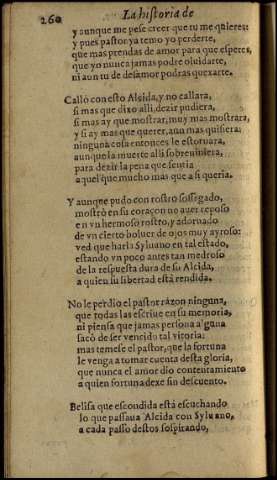 260 La historia de
y aunque me pese creer que tu me quieres:
y pues pastor ya temo yo perderte,
que mas prendas de amor para que esperes,
que yo nunca jamas podre oluidarte,
ni aun tu de desamor podras quexarte.
Callò con esto Alcida, y no callara,
si mas que dixo alli, dezir pudiera,
si mas ay que mostrar, muy mas mostrara,
y si ay mas que querer, aun mas quisiera:
ninguna cosa entonces le estoruara,
aunque la muerte alli sobreuiniera,
para dezir la pena que sentia
a quel que mucho mas que a si queria.
Y aunque pudo con rostro sossegado,
mostrò en su coraçon no auer reposo
en vn hermoso rostro, y adornado
de vn cierto boluer de ojos muy ayroso:
ved que haria Syluano en tal estado,
estando vn poco antes tan medroso
de la respuesta dura de su Alcida,
a quien su libertad está rendida.
No le perdio el pastor razon ninguna,
que todas las escriue en su memoria,
ni piensa que jamas persona alguna
sacò de ser vencido tal vitoria:
mas temese el pastor, que la fortuna
le venga a tomar cuenta desta gloria,
que nunca el amor dio contentamiento
a quien fortuna dexe sin descuento.
Belisa que escondida está escuchando
lo que passaua Alcida con Syluano,
a cada passo destos sospirando,